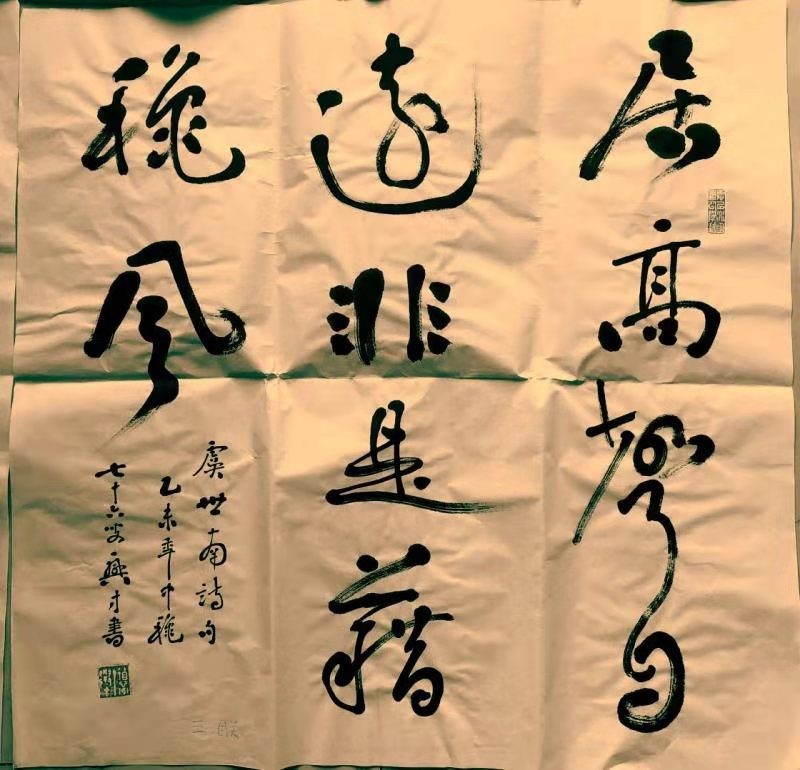 居高聲自
遠非是藉
穐風
虞世南詩句
乙未年中穐
七十六叟興才書